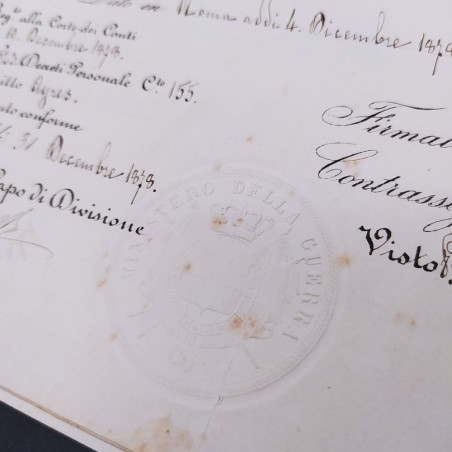 Dato in Roma addì 4. Dicembre 1878
Reg.º alla Corte dei Conti
10. Dicembre 1878.
Decreti Personale C.to 155.
Ayres.
conforme
31 Dicembre 1878.
Capo di Divisione
Firmat
Contrasseg
Visto
MINISTERO DELLA GUERRA